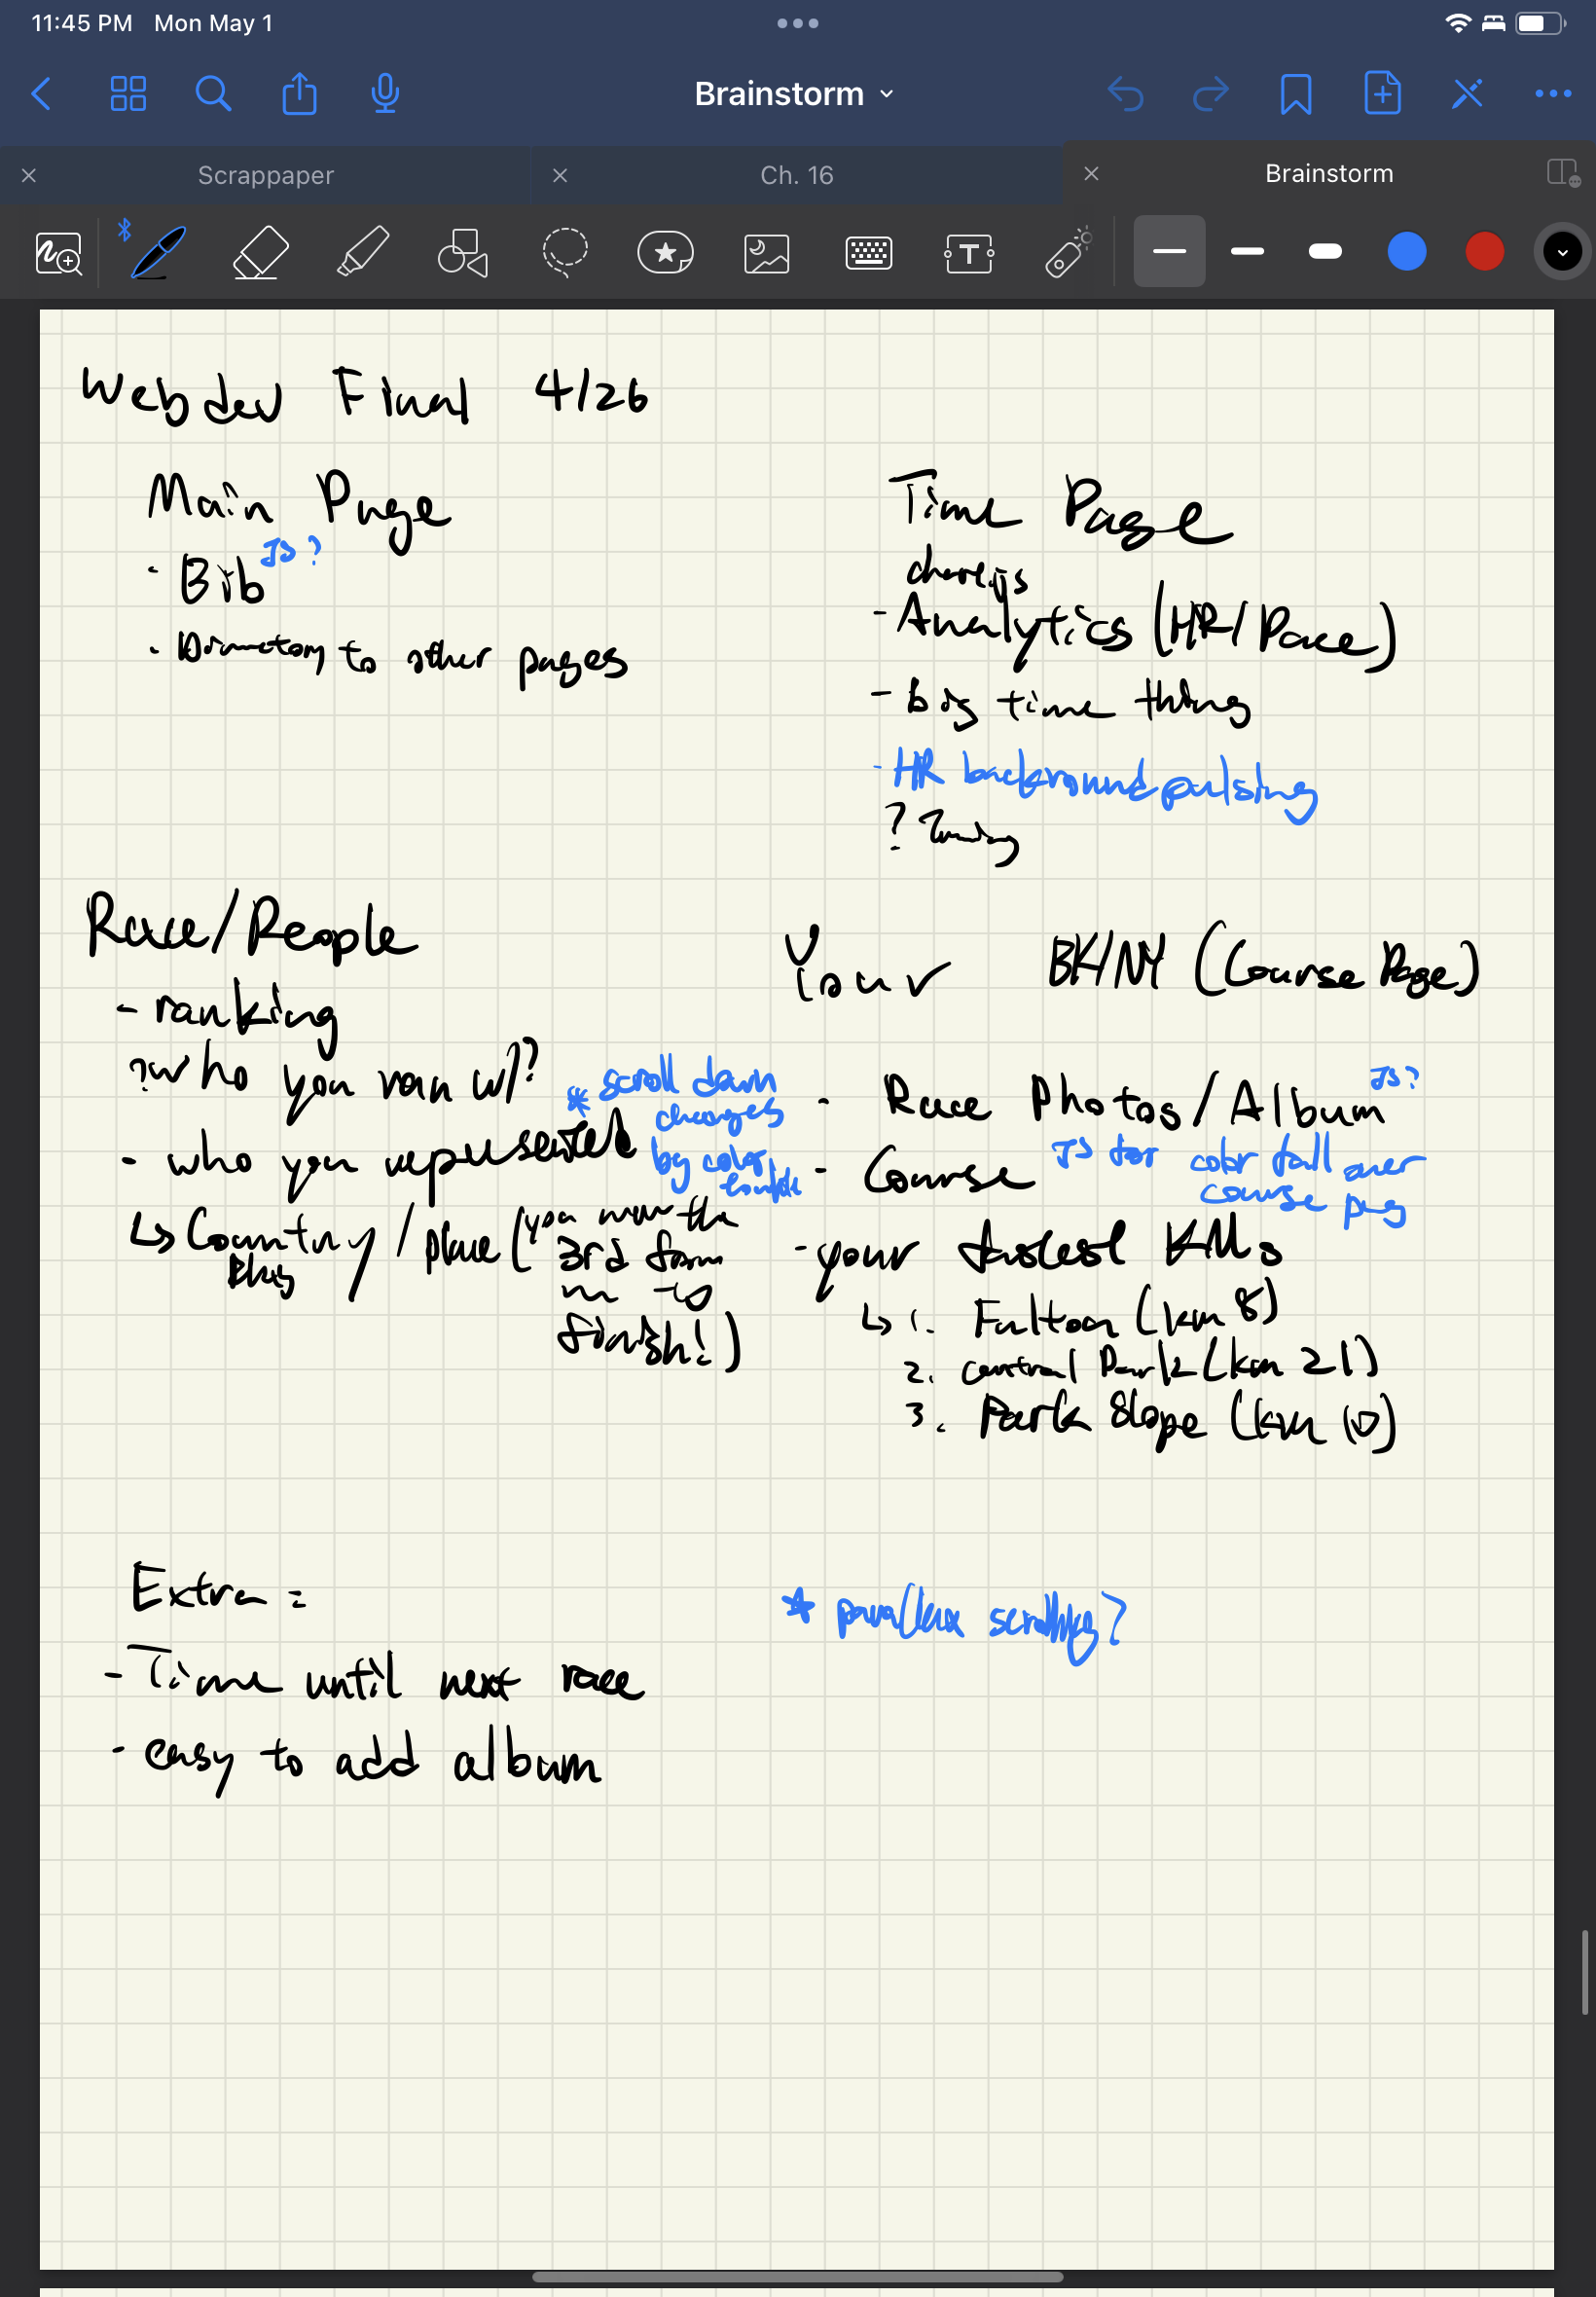 11:45 PM Mon May 1
Brainstorm
Scrappaper
Ch. 16
Brainstorm
T
Webdev Final 4/26
Main Page
- Bib JS?
- Directory to other pages
Time Page
- Analytics (HR/Pace)
- big time thing
- HR background pulsing
?
Race/People
- ranking
? who you ran w/?
- who you represented
↳ Country / place (you were the
3rd from
to
finish!)
* scroll down
changes
by color
Your BK/NY (Course Page)
- Race Photos/Album JS?
- Course JS for color fall over
course pg
- your fastest KMs
↳ 1. Fulton (km 8)
2. Central Park (km 21)
3. Park Slope (km 10)
Extra:
- Time until next race
- easy to add album
* parallax scrolling?